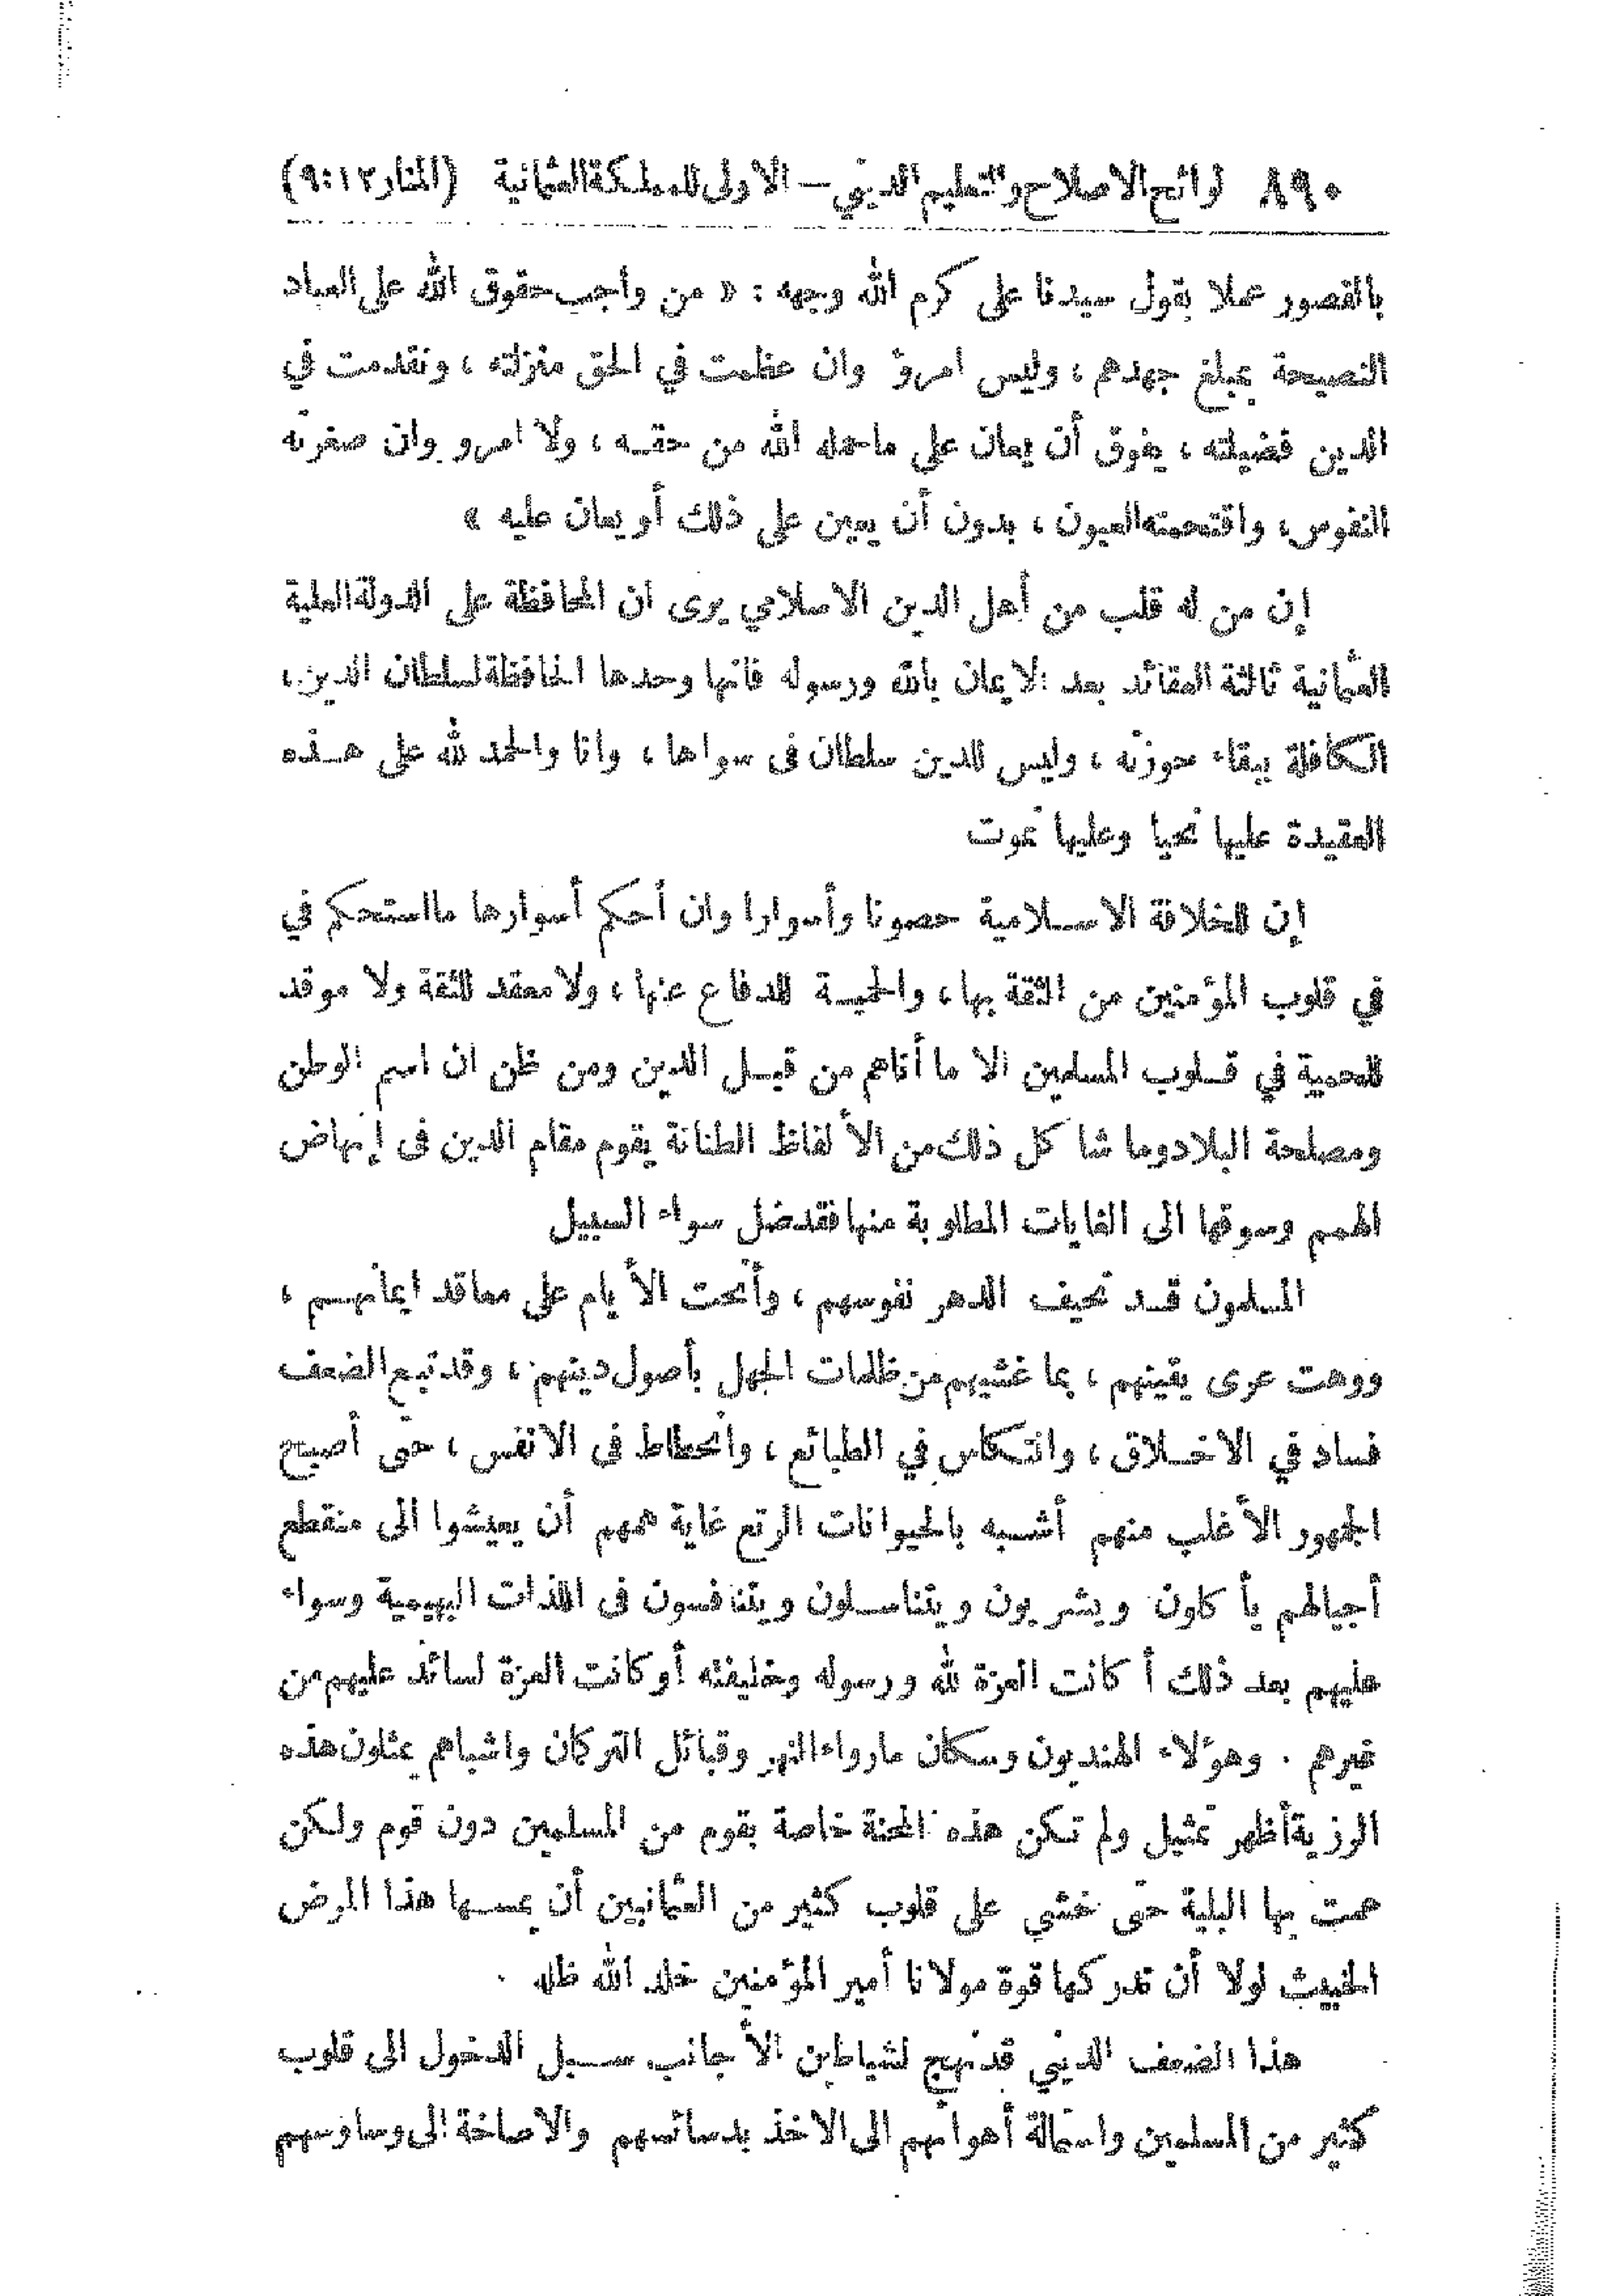 ٨٩٠ لوائح الاصلاح والتعليم الديني — الاولى للمملكة العثمانية (المنار ٩:١٢)
بالقصور عملا بقول سيدنا على كرم الله وجهه : « من واجب حقوق الله على العباد
النصيحة بمبلغ جهدهم ، وليس امرؤ وان عظمت في الحق منزلته ، وتقدمت في
الدين فضيلته ، يفوق أن يعان على ماحمله الله من حقه ، ولا امرو وان صغرته
النفوس، واقتحمته العيون ، بدون أن يعين على ذلك أو يعان عليه »
إن من له قلب من أهل الدين الاسلامي يرى ان المحافظة على الدولة العلية
العثمانية ثالثة العقائد بعد الايمان بالله ورسوله فانها وحدها الحافظة لسلطان الدين،
الكافلة ببقاء حوزته ، وليس للدين سلطان فى سواها ، وانا والحمد لله على هذه
العقيدة عليها نحيا وعليها نموت
إن للخلافة الاسلامية حصونا وأسوارا وان أحكم أسوارها ما استحكم في
في قلوب المؤمنين من الثقة بها ، والحمية للدفاع عنها ، ولا معقد للثقة ولا موقد
للحمية في قلوب المسلمين الا ما أتاهم من قبل الدين ومن ظن ان اسم الوطن
ومصلحة البلاد وما شا كل ذلك من الألفاظ الطنانة يقوم مقام الدين فى إنهاض
الهمم وسوقها الى الغايات المطلوبة منها فقد ضل سواء السبيل
المسلمون قد تحيف الدهر نفوسهم ، وأنحت الأيام على معاقد ايمانهم ،
ووهت عرى يقينهم ، بما غشيهم من ظلمات الجهل بأصول دينهم ، وقد تبع الضعف
فساد في الاخلاق ، وانتكاس في الطبائع ، وانحطاط فى الانفس ، حتى أصبح
الجمهور الأغلب منهم أشبه بالحيوانات الرتع غاية همهم أن يعيشوا الى منقطع
أجيالهم يأ كلون ويشربون ويتناسلون ويتنافسون فى اللذات البهيمية وسواء
عليهم بعد ذلك أ كانت العزة لله ورسوله وخليفته أو كانت العزة لسائد عليهم من
غيرهم . وهؤلاء الهنديون وسكان ماروراء النهر وقبائل التركمان واشباهم يمثلون هذه
الرزية أظهر تمثيل ولم تكن هذه المحنة خاصة بقوم من المسلمين دون قوم ولكن
عمت بها البلية حتى خشى على قلوب كثير من العثمانيين أن يمسها هذا المرض
الخبيث لولا أن تدركها قوة مولانا أمير المؤمنين خلد الله ظله .
هذا الضعف الديني قد نهج لشياطين الأجانب سبيل الدخول الى قلوب
كثير من المسلمين واستمالة أهوائهم الى الاخذ بدسائسهم والاصاخة الى وساوسهم